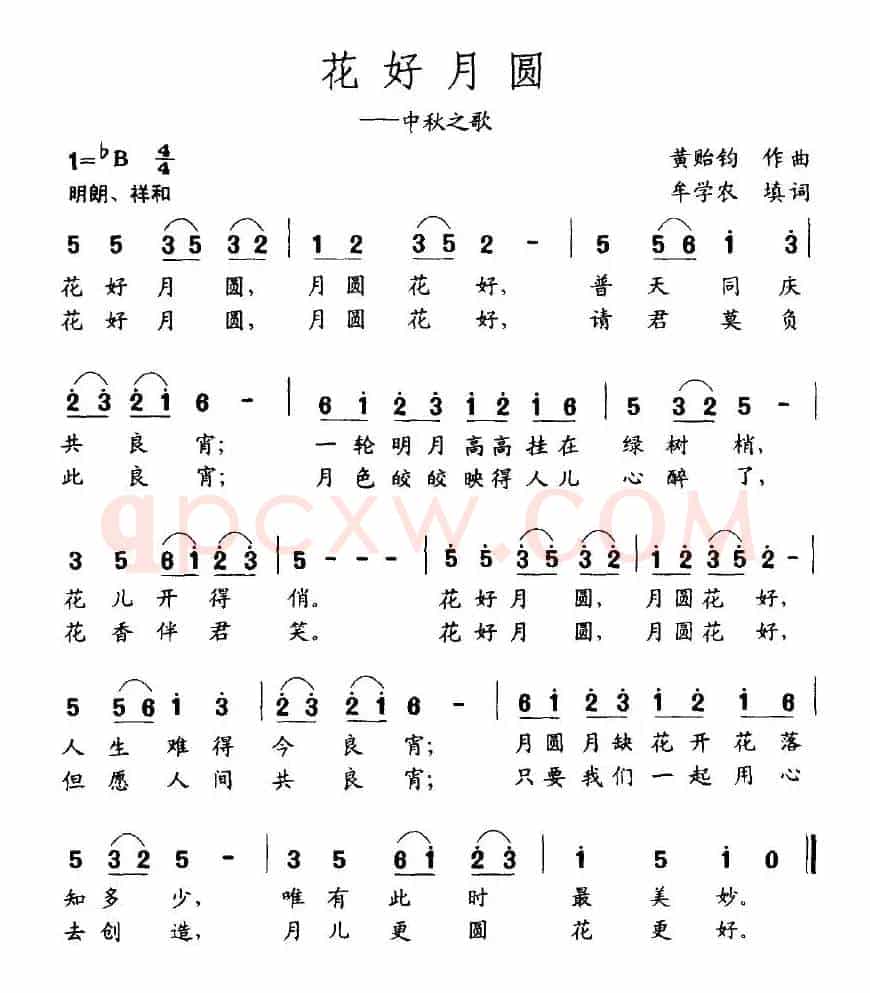 花好月圆
——中秋之歌
1=♭B 4/4 黄贻钧 作曲
明朗、祥和 牟学农 填词
5 5 3 5 3 2 | 1 2 3 5 2 - | 5 5 6 i 3̇ |
花好月 圆, 月圆花 好, 普天同庆
花好月 圆, 月圆花 好, 请君莫负
2̇ 3̇ 2̇ i 6 - | 6 i 2̇ 3̇ i 2̇ i 6 | 5 3 2 5 - |
共良宵; 一轮明月高高挂在 绿树梢,
此良宵; 月色皎皎映得人儿 心醉了,
qpcxw.COM
3 5 6 i 2̇ 3̇ | 5 - - - | 5̇ 5̇ 3̇ 5̇ 3̇ 2̇ | i 2̇ 3̇ 5̇ 2̇ - |
花儿开得 俏。 花好月 圆, 月圆花 好,
花香伴君 笑。 花好月 圆, 月圆花 好,
5 5 6 i 3̇ | 2̇ 3̇ 2̇ i 6 - | 6 i 2̇ 3̇ i 2̇ i 6 |
人生难得 今良宵; 月圆月缺花开花落
但愿人间 共良宵; 只要我们一起用心
5 3 2 5 - | 3 5 6 i 2̇ 3̇ | i 5 i 0 ‖
知多少, 唯有此时 最美妙。
去创造, 月儿更圆 花更好。